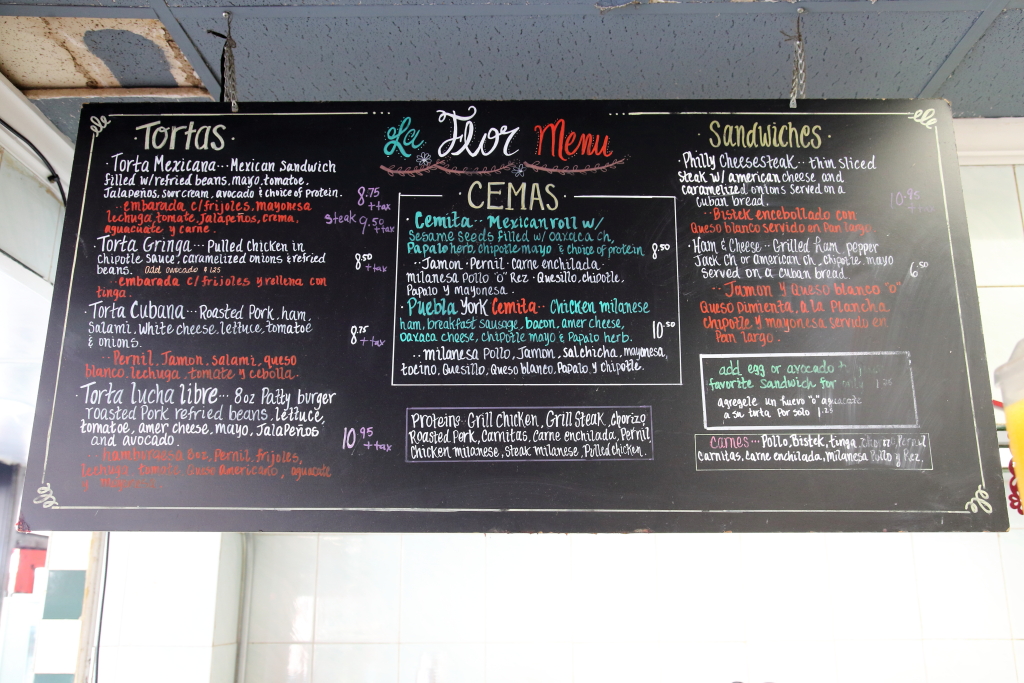 La Flor Menu
Tortas
Torta Mexicana... Mexican Sandwich
filled w/refried beans, mayo, tomato,
Jalapeños, sour cream, avocado & choice of protein.
8.75 +tax
embarada c/frijoles, mayonesa
lechuga, tomate, Jalapeños, crema,
aguacate y carne.
Steak 9.50 +tax
Torta Gringa... Pulled chicken in
chipotle sauce, caramelized onions & refried
beans. Add avocado $1.25
8.50 +tax
embarada c/frijoles y rellena con
tinga.
Torta Cubana... Roasted Pork, ham,
Salami, white cheese, lettuce, tomatoe
& onions.
8.75 +tax
Pernil, Jamon, salami, queso
blanco, lechuga, tomate y cebolla.
Torta lucha libre... 8oz Patty burger
roasted Pork refried beans, lettuce,
tomatoe, amer cheese, mayo, Jalapeños
and avocado.
10.95 +tax
hamburgesa 8oz, Pernil, frijoles,
lechuga tomate Queso Americano, aguacate
y
CEMAS
Cemita... Mexican roll w/
Sesame seeds filled w/ oaxaca ch,
Papalo herb, chipotle mayo & choice of protein
8.50
Jamon · Pernil · carne enchilada ·
milanesa Pollo "o" Rez · Quesillo, chipotle,
Papalo y mayonesa.
Puebla York Cemita... Chicken milanese
ham, breakfast sausage, bacon, amer cheese,
oaxaca cheese, chipotle mayo & Papalo herb.
10.50
milanesa Pollo, Jamon, salchicha, mayonesa,
tocino, Quesillo, Queso blanco, Papalo y chipotle.
Proteins: Grill Chicken, Grill Steak, chorizo
Roasted Pork, Carnitas, Carne enchilada, Pernil
Chicken milanese, steak milanese, Pulled chicken.
Sandwiches
Philly Cheesesteak... thin sliced
Steak w/ american cheese and
caramelized onions served on a
cuban bread.
10.95
Bistek encebollado con
Queso blanco servido en Pan largo.
Ham & Cheese... Grilled ham, pepper
Jack ch or American ch, chipotle mayo
served on a cuban bread.
6.50
Jamon y Queso blanco "o"
Queso Pimienta, a la Plancha
chipotle y mayonesa servido en
Pan largo.
add egg or avocado to
favorite Sandwich for only 1.25
agregele un huevo "o" aguacate
a su torta Por solo 1.25
Carnes... Pollo, Bistek, tinga, chorizo, Pernil
carnitas, carne enchilada, Milanesa Pollo y Rez,